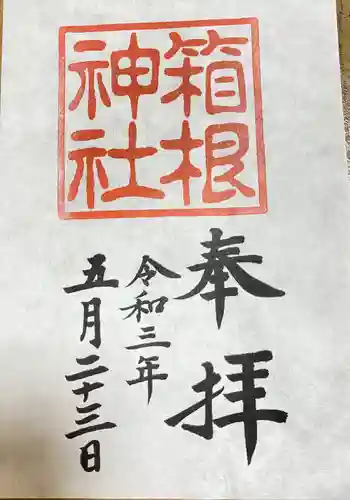 箱根
神社
奉拝
令和三年
五月二十三日